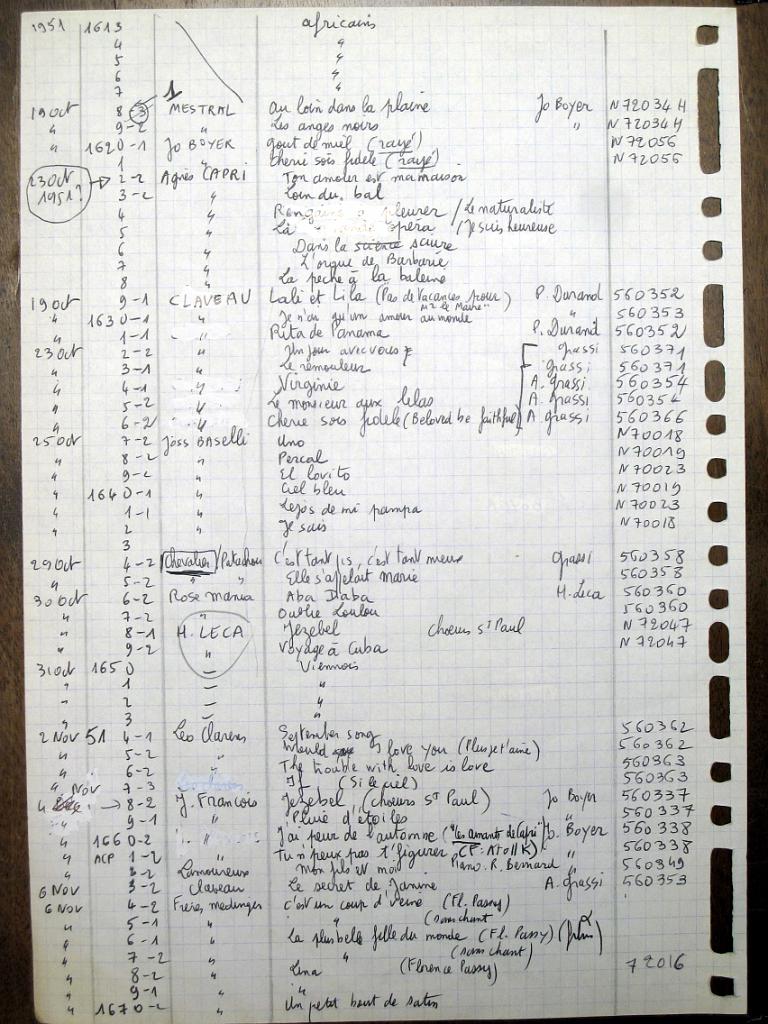 1951 1613 africains
4 "
5 "
6 "
7 "
1
19 oct 8 3 MESTRAL au loin dans la plaine Jo Boyer N 72034 H
" 9-2 " Les anges noirs " N 72034 H
" 1620-1 Jo BOYER gout de miel (rayé) N 72056
1 " cherie sois fidele (rayé) N 72056
23 Oct 1951? → 2-2 Agnès CAPRI Ton amour est ma maison
3-2 Loin du bal
4 " pleurer / Le naturaliste
5 " opera / Je suis heureuse
6 " Dans la science saure
7 " L'orgue de Barbarie
8 " La peche à la baleine
19 Oct 9-1 CLAVEAU Lali et Lila (Pas de Vacances pour P. Durand 560352
Mr le Maire")
" 1630-1 " Je n'ai qu'un amour au monde " 560353
" 1-1 " Rita de Panama P. Durand 560352
23 Oct 2-2 " Un jour avec vous grassi 560371
" 3-1 Le remouleur grassi 560371
" 4-1 " Virginie A. grassi 560354
" 5-2 Le monsieur aux lilas A. grassi 560354
" 6-2 " Cherie sois fidele (Beloved be faithful) A grassi 560366
25 Oct 7-2 Joss BASELLI Uno N 70018
" 8-2 " Percal N 70019
" 9-2 " El lovito N 70023
" 1640-1 " Ciel bleu N 70019
" 1-1 " Lejos de mi pampa N 70023
" 2 " Je sais N 70018
3
29 Oct 4-2 Chevalier / Patachou C'est tant pis, c'est tant mieux grassi 560358
" 5-2 " " Elle s'appelait marie 560358
30 Oct 6-2 Rose mania Aba Daba M. Leca 560360
" 7-2 " Oublie Loulou 560360
" 8-1 M. LECA Jezebel Choeurs St Paul N 72047
" 9-2 " Voyage à Cuba N 72047
31 oct 1650 – Viennois
" 1 – "
" 2 – "
" 3 – "
2 Nov 51 4-1 Leo Clarens September song 560362
" 5-2 Would I love you (Plus je t'aime) 560362
" 6-2 " The trouble with love is love 560363
" Nov 7-3 If (Si le ciel) 560363
4 → 8-2 J. Francois Jezebel (choeurs St Paul) Jo Boyer 560337
" 9-1 " Pluie d'étoiles " 560337
" 1660-2 " J'ai peur de l'automne ("les amants de Capri") Jo. Boyer 560338
" ACP 1-2 Tu n'peux pas t'figurer (CF: AtollK) " 560338
" 2-2 Lamoureux mon fils et moi Piano. R. Bernard " 560349
6 Nov 3-2 Claveau Le secret de Janine A. grassi 560353
6 NOV 4-2 Freres medinger c'est un coup d'veine (Fl. Passy)
" 5-1 " " (sans chant
" 6-1 " La plus belle fille du monde (Fl. Passy)
" 7-2 " " (sans chant)
" 8-2 " Lina (Florence Passy) 72016
" 9-1 " "
" 1670-2 " Un petit bout de satin